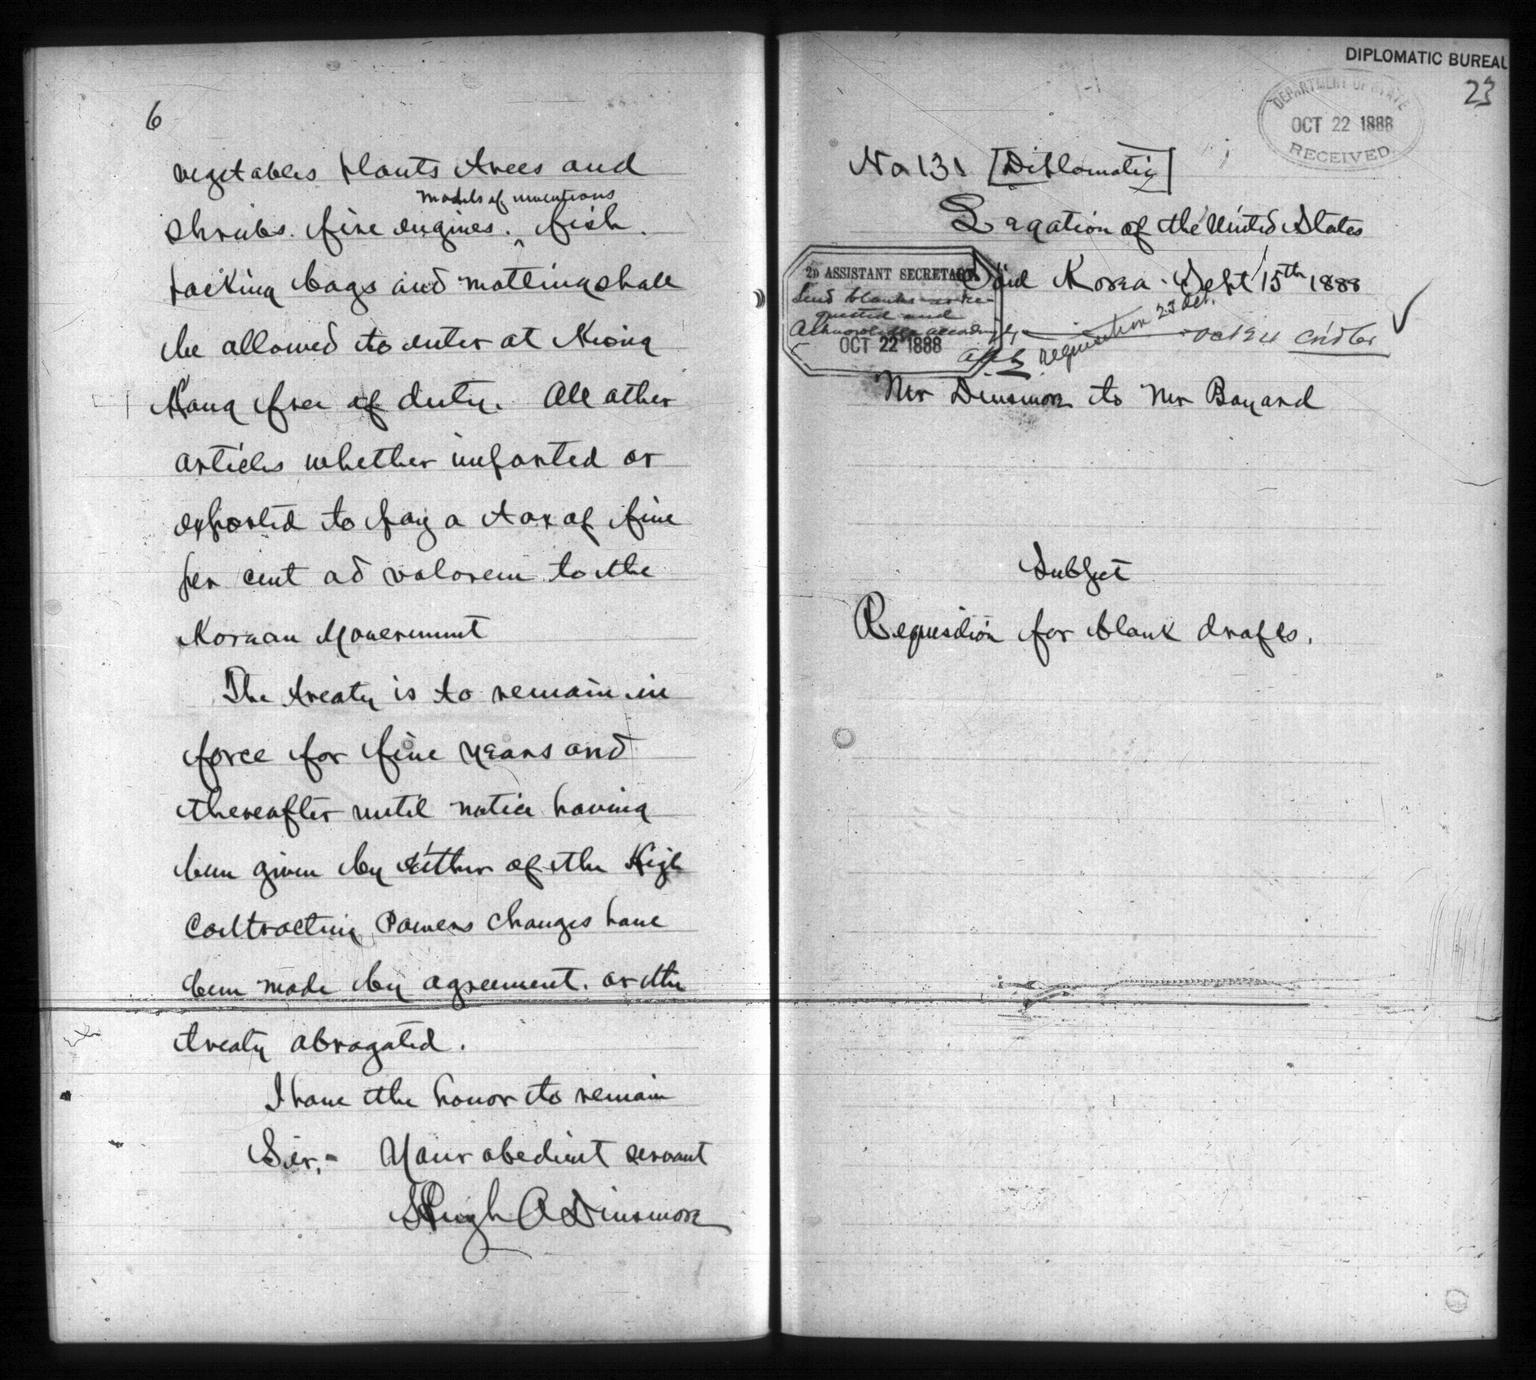 6
vegetables plants trees and
models of inventions
shrubs. fire engines. ^ fish.
packing bags and matting shall
be allowed to enter at Kiong
Hang free of duty. All other
articles whether imported or
exported to pay a tax of five
per cent ad valorem to the
Korean Government
The treaty is to remain in
force for five years and
thereafter until notice having
been given by either of the High
Contracting Powers changes have
been made by agreement. or the
treaty abrogated.
I have the honor to remain
Sir,- Your obedient servant
Hugh A Dinsmore
DIPLOMATIC BUREAU
23
DEPARTMENT OF STATE
OCT 22 1888
RECEIVED
No 131 [Diplomatic]
Legation of the United States
Söul Korea. Sept 15th 1888
2D ASSISTANT SECRETARY
Send blanks as re-
quested and
Acknowledge accordingly
OCT 22 1888
requisition 23 Oct.
Oct 24
Mr Dinsmore to Mr Bayard
Subject
Requisition for blank drafts.